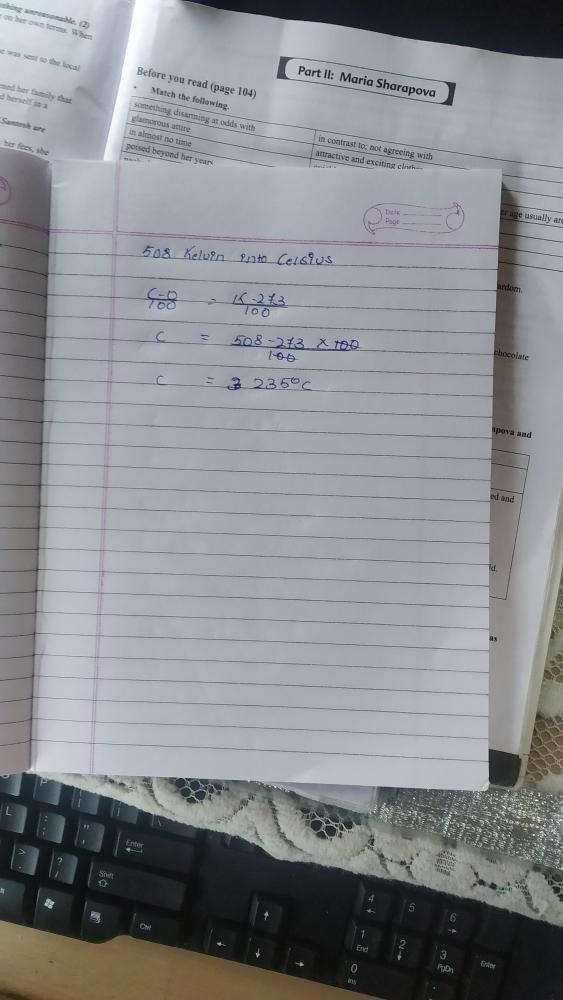 thing unreasonable. (2)
on her own terms. When
e was sent to the local
ned her family that
d herself in a
Santosh are
her fees, she
Part II: Maria Sharapova
Before you read (page 104)
• Match the following.
something disarming at odds with
in contrast to; not agreeing with
glamorous attire
attractive and exciting clothes
in almost no time
poised beyond her years
er age usually are
ardom.
chocolate
apova and
ed and
ld.
as
Date
Page
508 Kelvin into Celsius
C-0/100 = K-273/100
C = 508-273 × 100/100
C = 235°C
L
: ;
" '
Enter
>
.
? /
Shift
Ctrl
4
5
6
1
End
2
3
PgDn
Enter
0
Ins